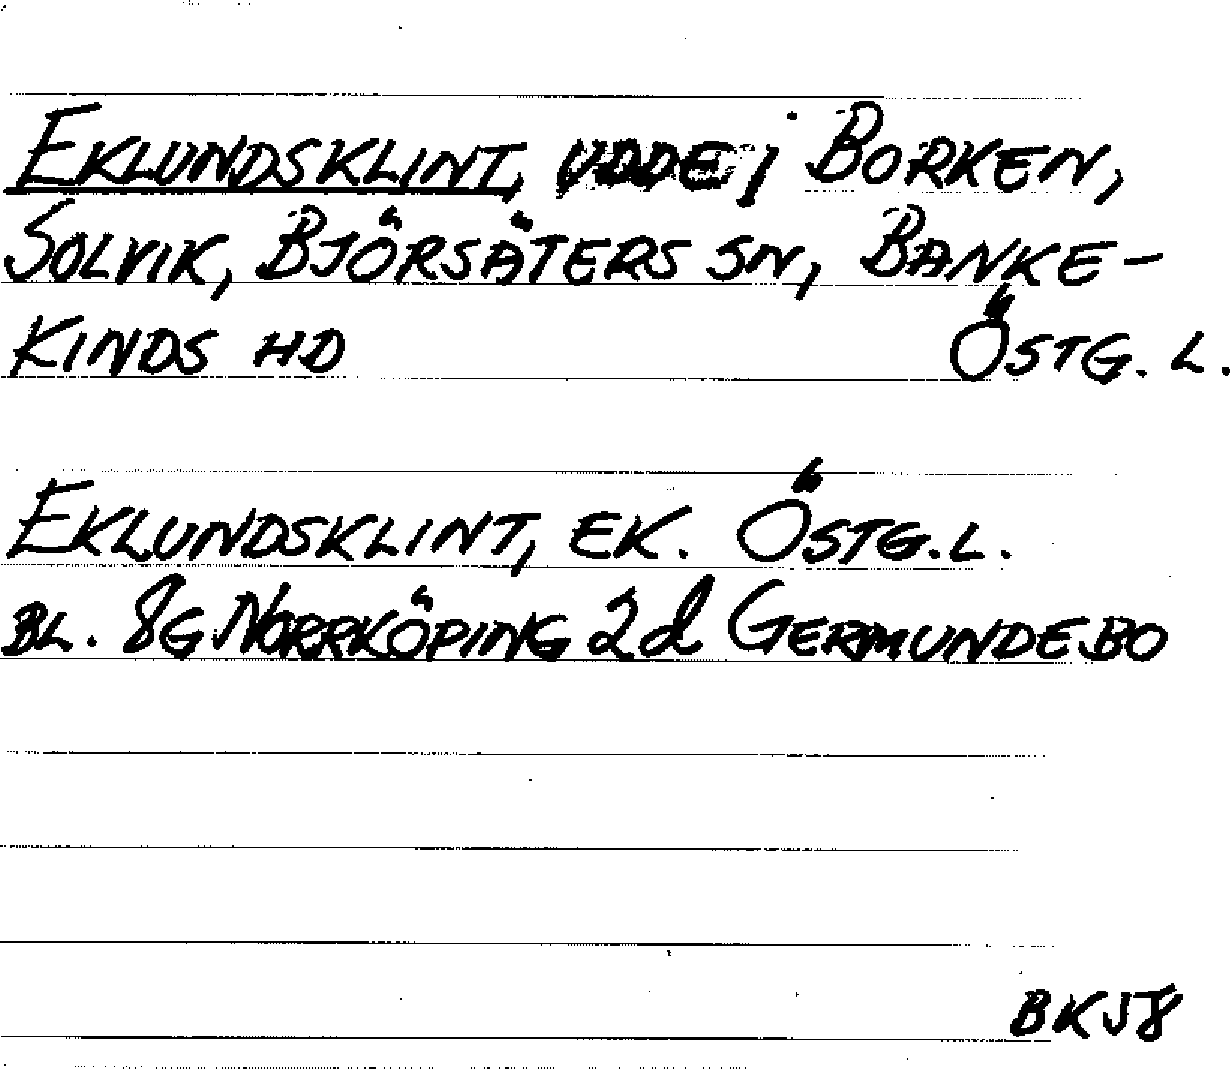 EKLUNDSKLINT, UDDE I BORKEN,
SOLVIK, BJÖRSÄTERS SN, BANKE-
KINDS HD ÖSTG. L.
EKLUNDSKLINT, EK. ÖSTG. L.
BL. 8G NORRKÖPING 2d GERMUNDEBO